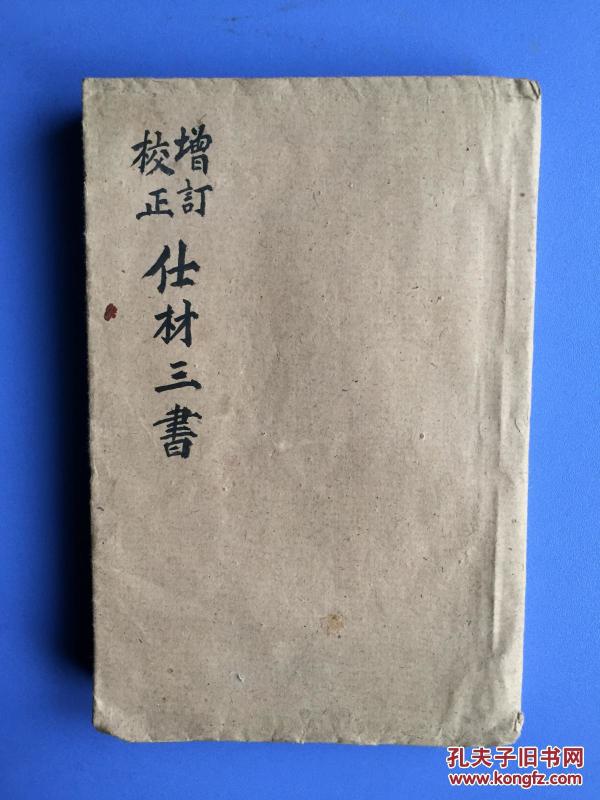 增訂
校正
仕材三書
孔夫子旧书网
www.kongfz.com